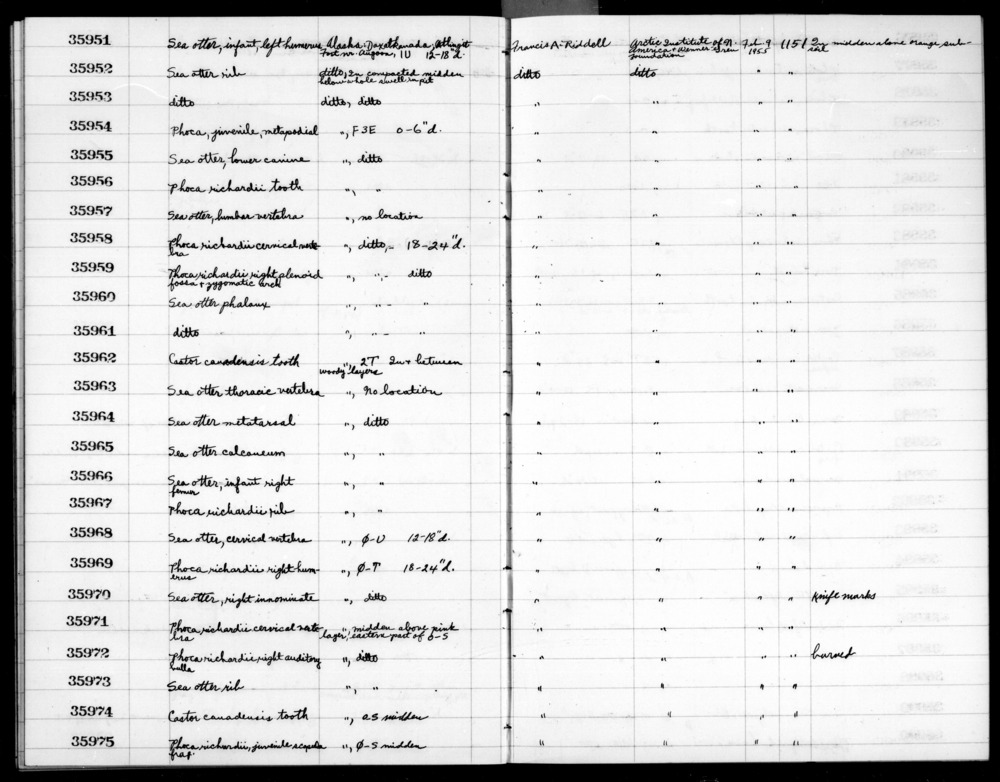 35951 Sea otter, infant, left humerus Alaska: Daxatkanada, Tlingit Francis A. Riddell Arctic Institute of N. Feb. 9 1151 In midden above orange sub-
Fort nr. Angoon, IU 12-18"d. America + Wenner-Gren 1955 soil
Foundation
35952 Sea otter rib ditto, In compacted midden ditto ditto " "
below whole swell in pit
35953 ditto ditto, ditto " " " "
35954 Phoca, juvenile, metapodial ", F3E 0-6"d. " " " "
35955 Sea otter, lower canine ", ditto " " " "
35956 Phoca richardii tooth ", " " " " "
35957 Sea otter, lumbar vertebra ", no location " " " "
35958 Phoca richardii cervical verte- ", ditto, - 18-24"d. " " " "
bra
35959 Phoca richardii right glenoid ", " - ditto " " " "
fossa + zygomatic arch
35960 Sea otter phalanx ", " - " " " " "
35961 ditto ", " - " " " " "
35962 Castor canadensis tooth ", 2T 2u+ between " " " "
"woody" layers
35963 Sea otter thoracic vertebra ", No location " " " "
35964 Sea otter metatarsal ", ditto " " " "
35965 Sea otter calcaneum ", " " " " "
35966 Sea otter, infant right ", " " " " "
femur
35967 Phoca richardii rib ", " " " " "
35968 Sea otter, cervical vertebra ", Ø-U 12-18"d. " " " "
35969 Phoca richardii right hum- ", Ø-T 18-24"d. " " " "
erus
35970 Sea otter, right innominate ", ditto " " " " Knife marks
35971 Phoca richardii cervical verte- ", midden above pink " " " "
bra layer, eastern part of 0-S
35972 Phoca richardii, right auditory ", ditto " " " " burned
bulla
35973 Sea otter rib ", " " " " "
35974 Castor canadensis tooth ", 0S midden " " " "
35975 Phoca richardii, juvenile scapula ", Ø-S midden " " " "
frag.